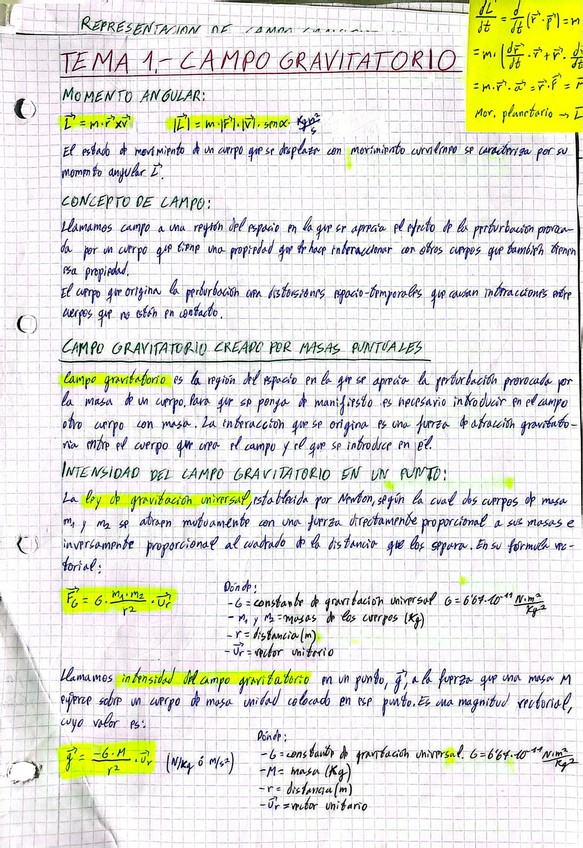 REPRESENTACION DE CAMPO GRAVITATORIO
TEMA 1.- CAMPO GRAVITATORIO
dL⃗/dt = d/dt (r⃗ · p⃗) = m
= m · (dr⃗/dt · v⃗ + r⃗ ·
= m · r⃗ · a⃗ = r⃗ · F⃗ =
Mov. planetario → L
MOMENTO ANGULAR:
L⃗ = m · r⃗ x v⃗ |L⃗| = m · |r⃗| · |v⃗| · senα Kg m²/s
El estado de movimiento de un cuerpo que se desplaza con movimiento curvilíneo se caracteriza por su
momento angular L⃗.
CONCEPTO DE CAMPO:
Llamamos campo a una región del espacio en la que se aprecia el efecto de la perturbación provoca-
da por un cuerpo que tiene una propiedad que le hace interaccionar con otros cuerpos que también tienen
esa propiedad.
El cuerpo que origina la perturbación crea distorsiones espacio-temporales que causan interacciones entre
cuerpos que no están en contacto.
CAMPO GRAVITATORIO CREADO POR MASAS PUNTUALES
Campo gravitatorio es la región del espacio en la que se aprecia la perturbación provocada por
la masa de un cuerpo. Para que se ponga de manifiesto es necesario introducir en el campo
otro cuerpo con masa. La interacción que se origina es una fuerza de atracción gravitato-
ria entre el cuerpo que crea el campo y el que se introduce en él.
INTENSIDAD DEL CAMPO GRAVITATORIO EN UN PUNTO:
La ley de gravitación universal, establecida por Newton, según la cual dos cuerpos de masa
m₁ y m₂ se atraen mutuamente con una fuerza directamente proporcional a sus masas e
inversamente proporcional al cuadrado de la distancia que los separa. En su fórmula vec-
torial:
F⃗G = G · m₁·m₂/r² · u⃗r
Donde:
- G = constante de gravitación universal G = 6'67·10⁻¹¹ N·m²/Kg²
- m₁ y m₂ = masas de los cuerpos (Kg)
- r = distancia (m)
- u⃗r = vector unitario
Llamamos intensidad del campo gravitatorio en un punto, g⃗, a la fuerza que una masa M
ejerce sobre un cuerpo de masa unidad colocado en ese punto. Es una magnitud vectorial,
cuyo valor es:
g⃗ = -G·M/r² · u⃗r (N/Kg ó m/s²)
Donde:
- G = constante de gravitación universal. G = 6'67·10⁻¹¹ N·m²/Kg²
- M = masa (Kg)
- r = distancia (m)
- u⃗r = vector unitario